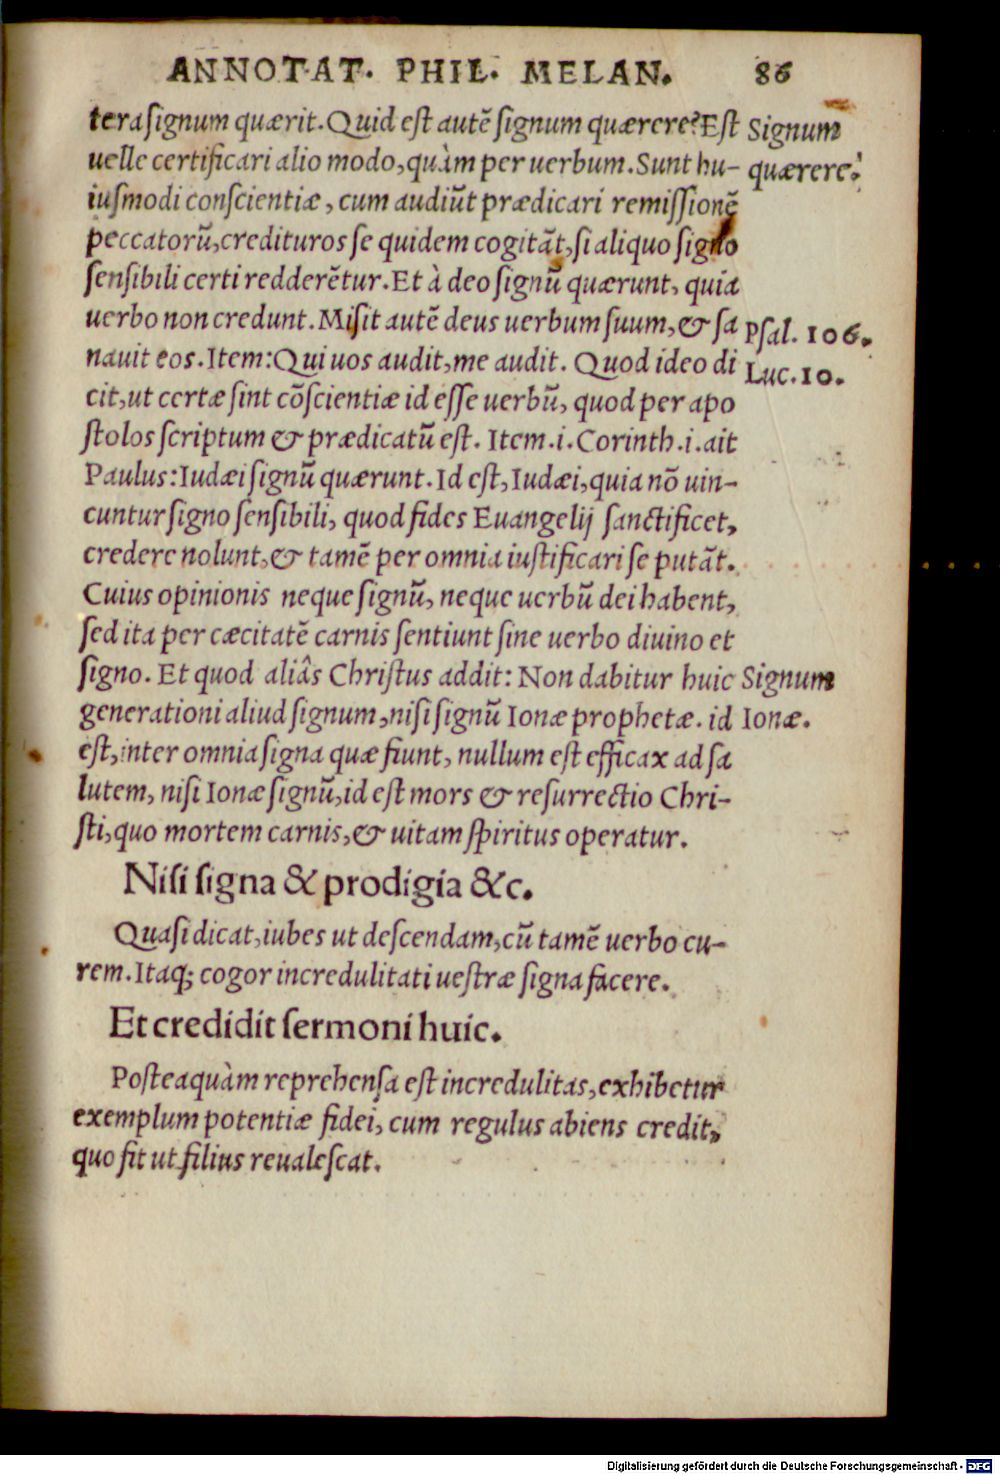 ANNOTAT. PHIL. MELAN. 86
tera signum quærit. Quid eſt autē ſignum quærere? Eſt
Signum
uelle certificari alio modo, quàm per uerbum. Sunt hu-
quærere?
iuſmodi conſcientiæ, cum audiūt prædicari remiſſionē
peccatorū, credituros ſe quidem cogitāt, ſi aliquo ſigno
ſenſibili certi redderētur. Et à deo ſignū quærunt, quia
uerbo non credunt. Miſit autē deus uerbum ſuum, & ſa
Pſal. 106.
nauit eos. Item: Qui uos audit, me audit. Quod ideo di
Luc. 10.
cit, ut certæ ſint cōſcientiæ id eſſe uerbū, quod per apo
ſtolos ſcriptum & prædicatū eſt. Item .i. Corinth. i. ait
Paulus: Iudæi ſignū quærunt. Id eſt, Iudæi, quia nō uin-
cuntur ſigno ſenſibili, quod fides Euangelij ſanctificet,
credere nolunt, & tamē per omnia iuſtificari ſe putāt.
Cuius opinionis neque ſignū, neque uerbū dei habent,
ſed ita per cæcitatē carnis ſentiunt ſine uerbo diuino et
ſigno. Et quod aliâs Chriſtus addit: Non dabitur huic
Signum
generationi aliud ſignum, niſi ſignū Ionæ prophetæ. id
Ionæ.
eſt, inter omnia ſigna quæ fiunt, nullum eſt efficax ad ſa
lutem, niſi Ionæ ſignū, id eſt mors & reſurrectio Chri-
ſti, quo mortem carnis, & uitam ſpiritus operatur.
Niſi ſigna & prodigia &c.
Quaſi dicat, iubes ut deſcendam, cū tamē uerbo cu-
rem. Itaq; cogor incredulitati ueſtræ ſigna facere.
Et credidit ſermoni huic.
Poſteaquàm reprehenſa eſt incredulitas, exhibetur
exemplum potentiæ fidei, cum regulus abiens credit,
quo fit ut filius reualeſcat.
Digitalisierung gefördert durch die Deutsche Forschungsgemeinschaft - DFG